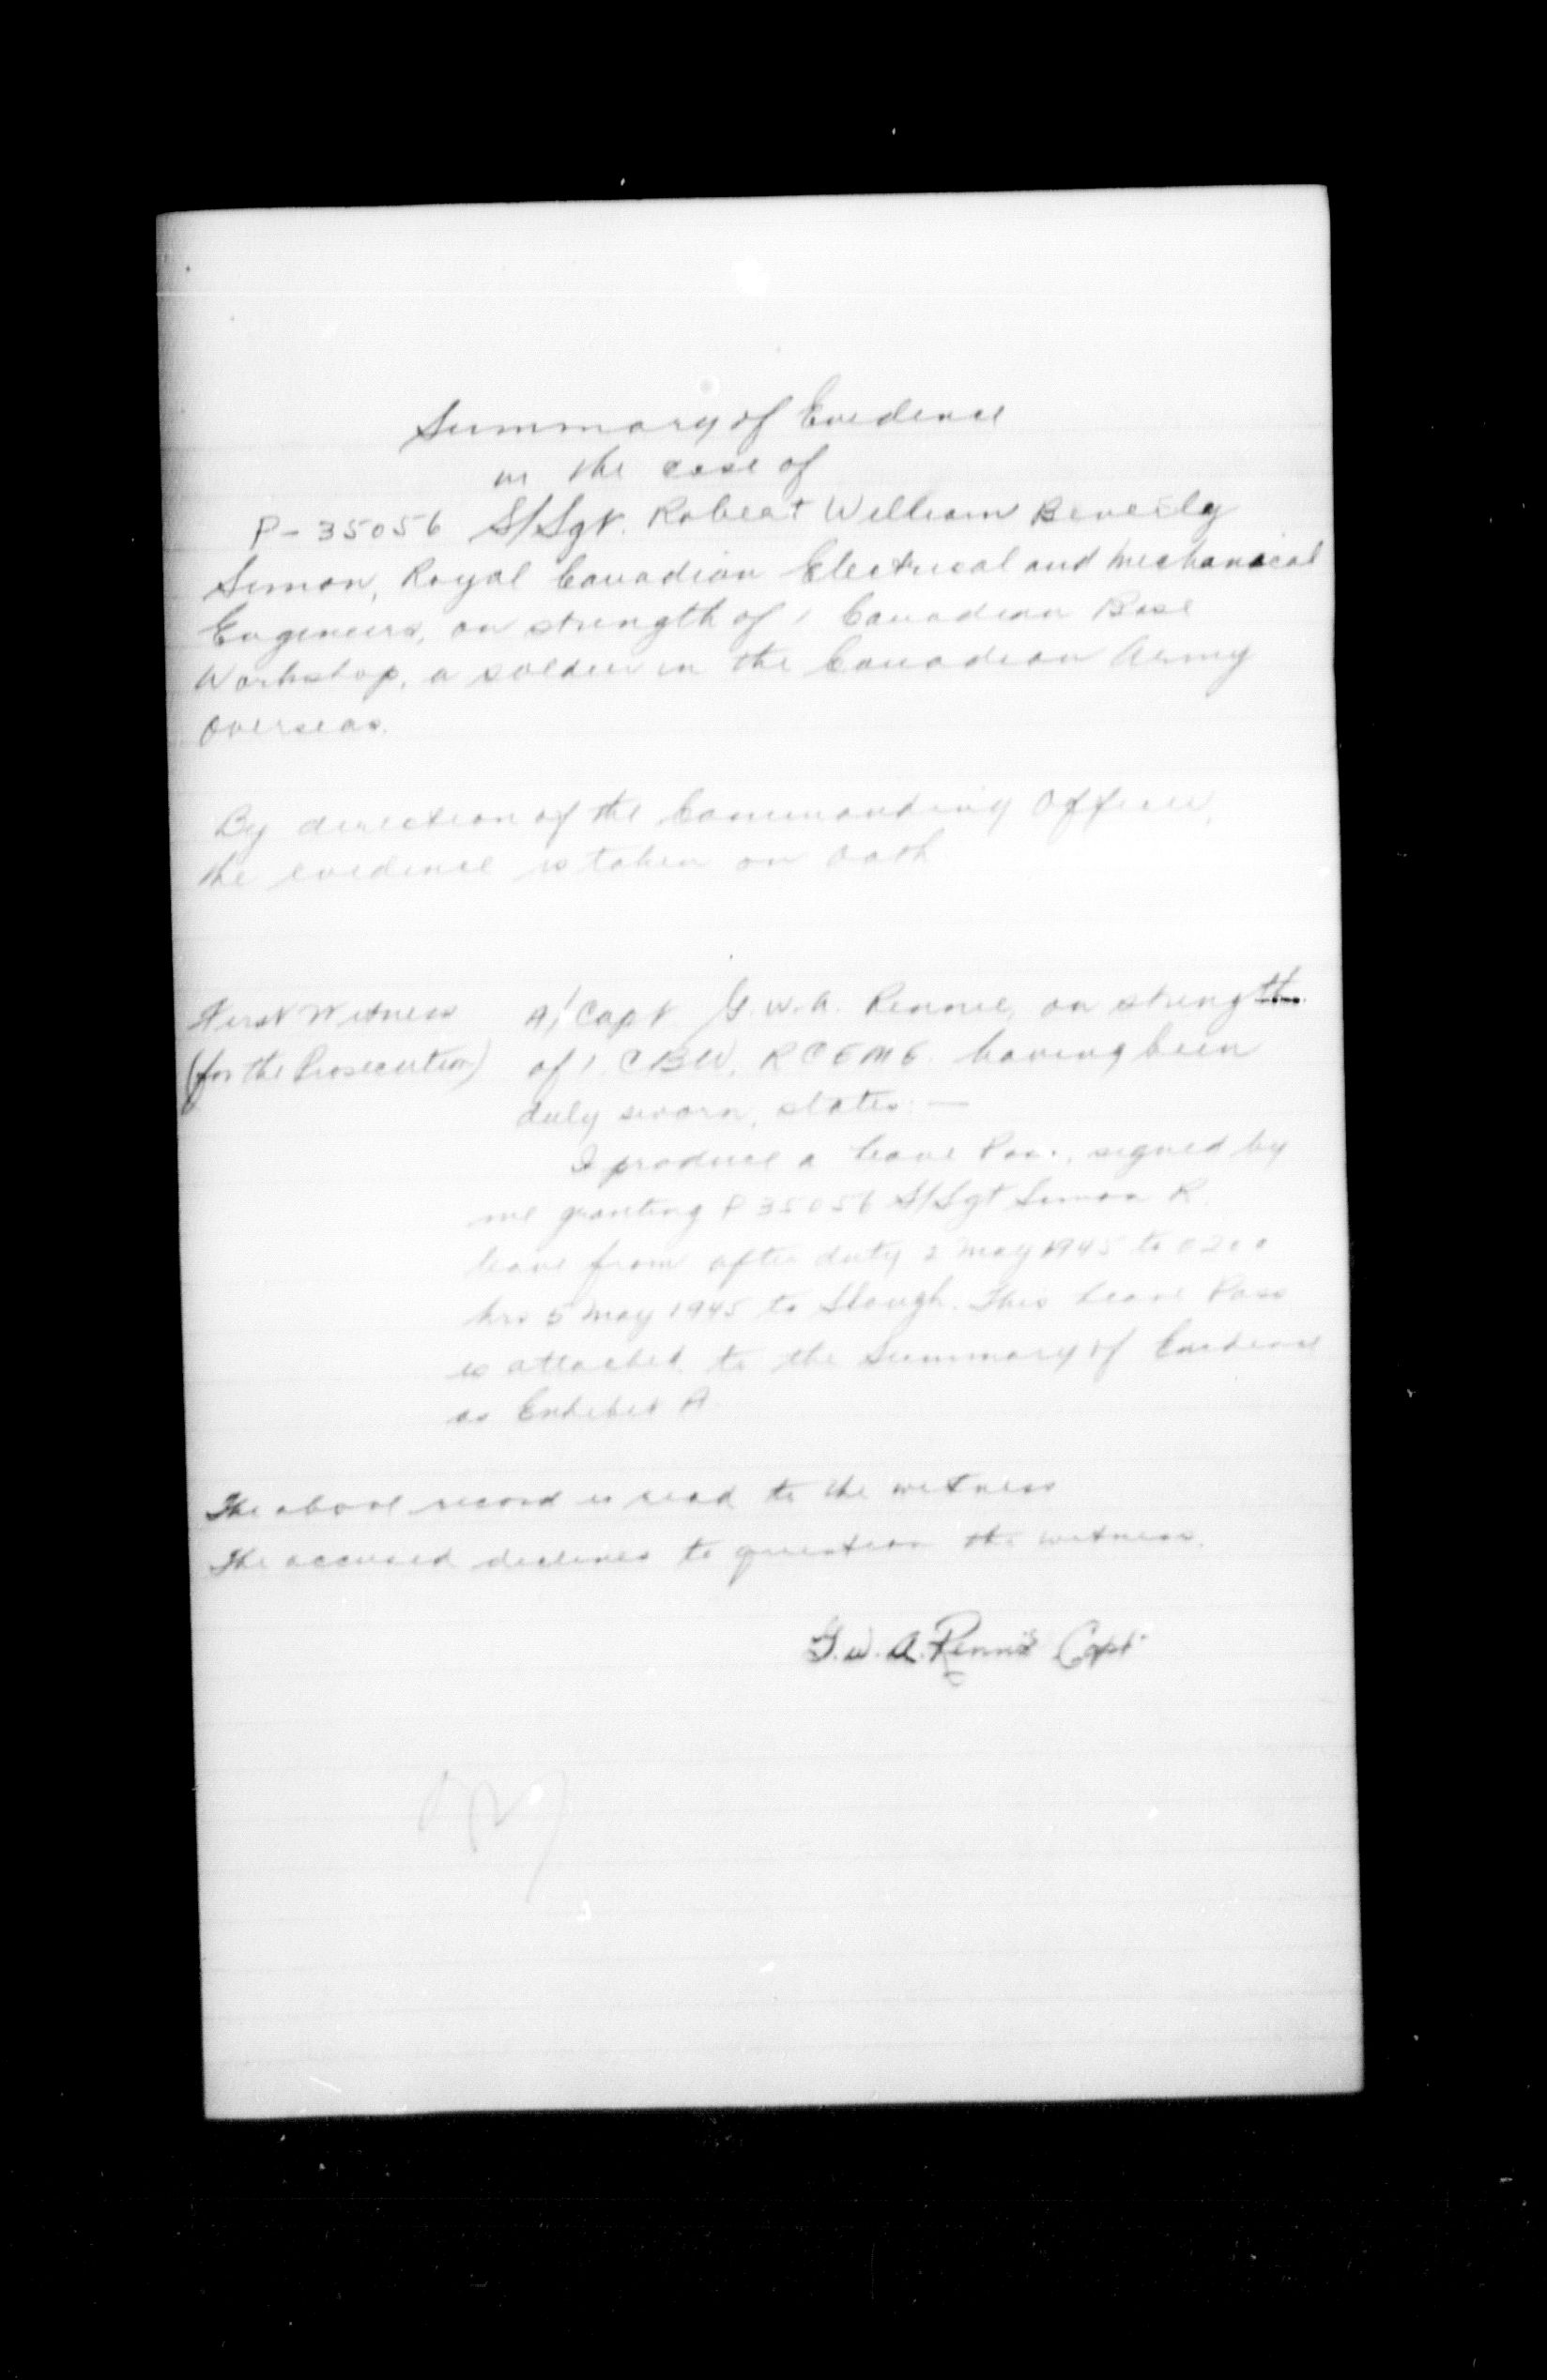 Summary of Evidence
in the case of
P-35056 S/Sgt. Robert William Beverly
Simon, Royal Canadian Electrical and Mechanical
Engineers, on strength of 1 Canadian Base
Workshop, a soldier in the Canadian Army
Overseas.
By direction of the Commanding Officer,
the evidence is taken on oath
First Witness A/Capt G.W.A. Rennie, on strength
(for the Prosecution) of 1. CBW, RCEME. having been
duly sworn, states:—
I produce a leave Pass, signed by
me granting P35056 S/Sgt Simon R.
leave from after duty 2 May 1945 to 0200
hrs 5 May 1945 to Slough. This Leave Pass
is attached to the Summary of Evidence
as Exhibit A
The above record is read to the witness
The accused declines to question the witness.
G.W.A. Rennie Capt